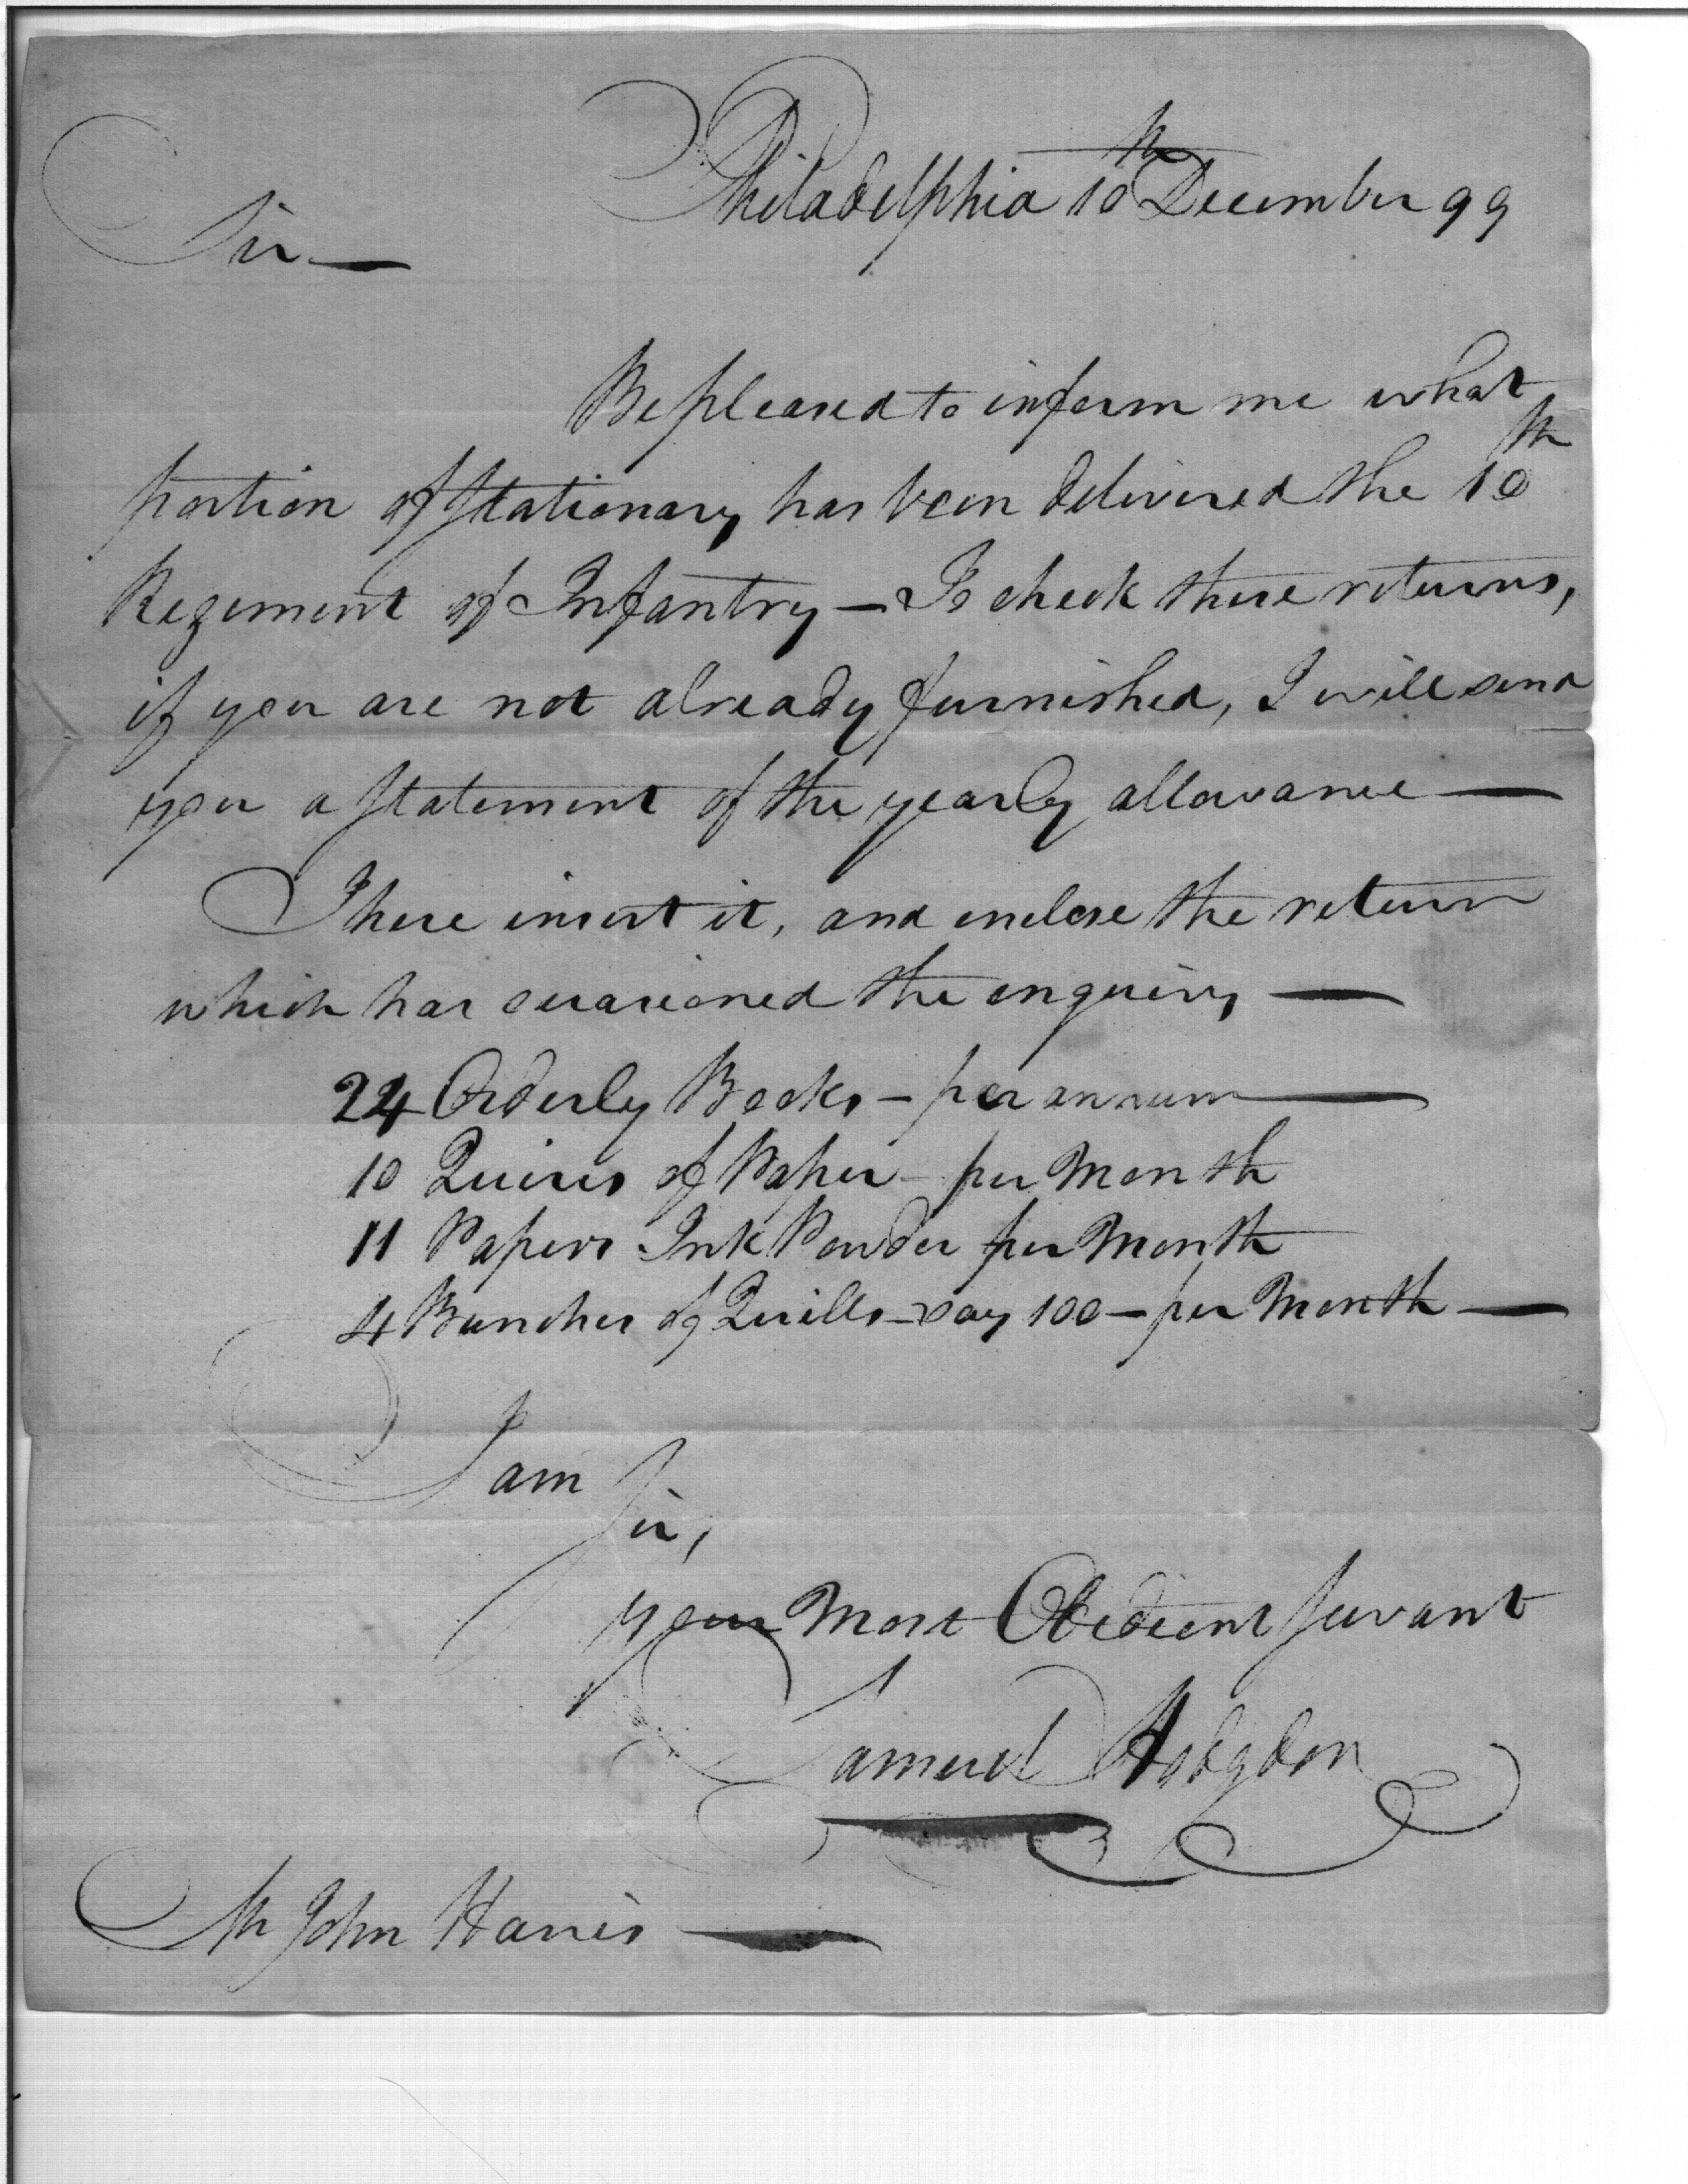 Philadelphia 10th December 99
Sir —
Be pleased to inform me what
portion of Stationary has been delivered the 10th
Regiment of Infantry — To check these returns,
if you are not already furnished, I will send
you a Statement of the yearly allowance —
I here insert it, and enclose the return
which has occasioned the enquiry —
24 Orderly Books – per annum —
10 Quires of Paper – per Month
11 Papers Ink Powder per Month
4 Bunches of Quills – say 100 – per Month —
I am
Sir,
your Most Obedient Servant
Samuel Hodgdon
Mr John Harris —